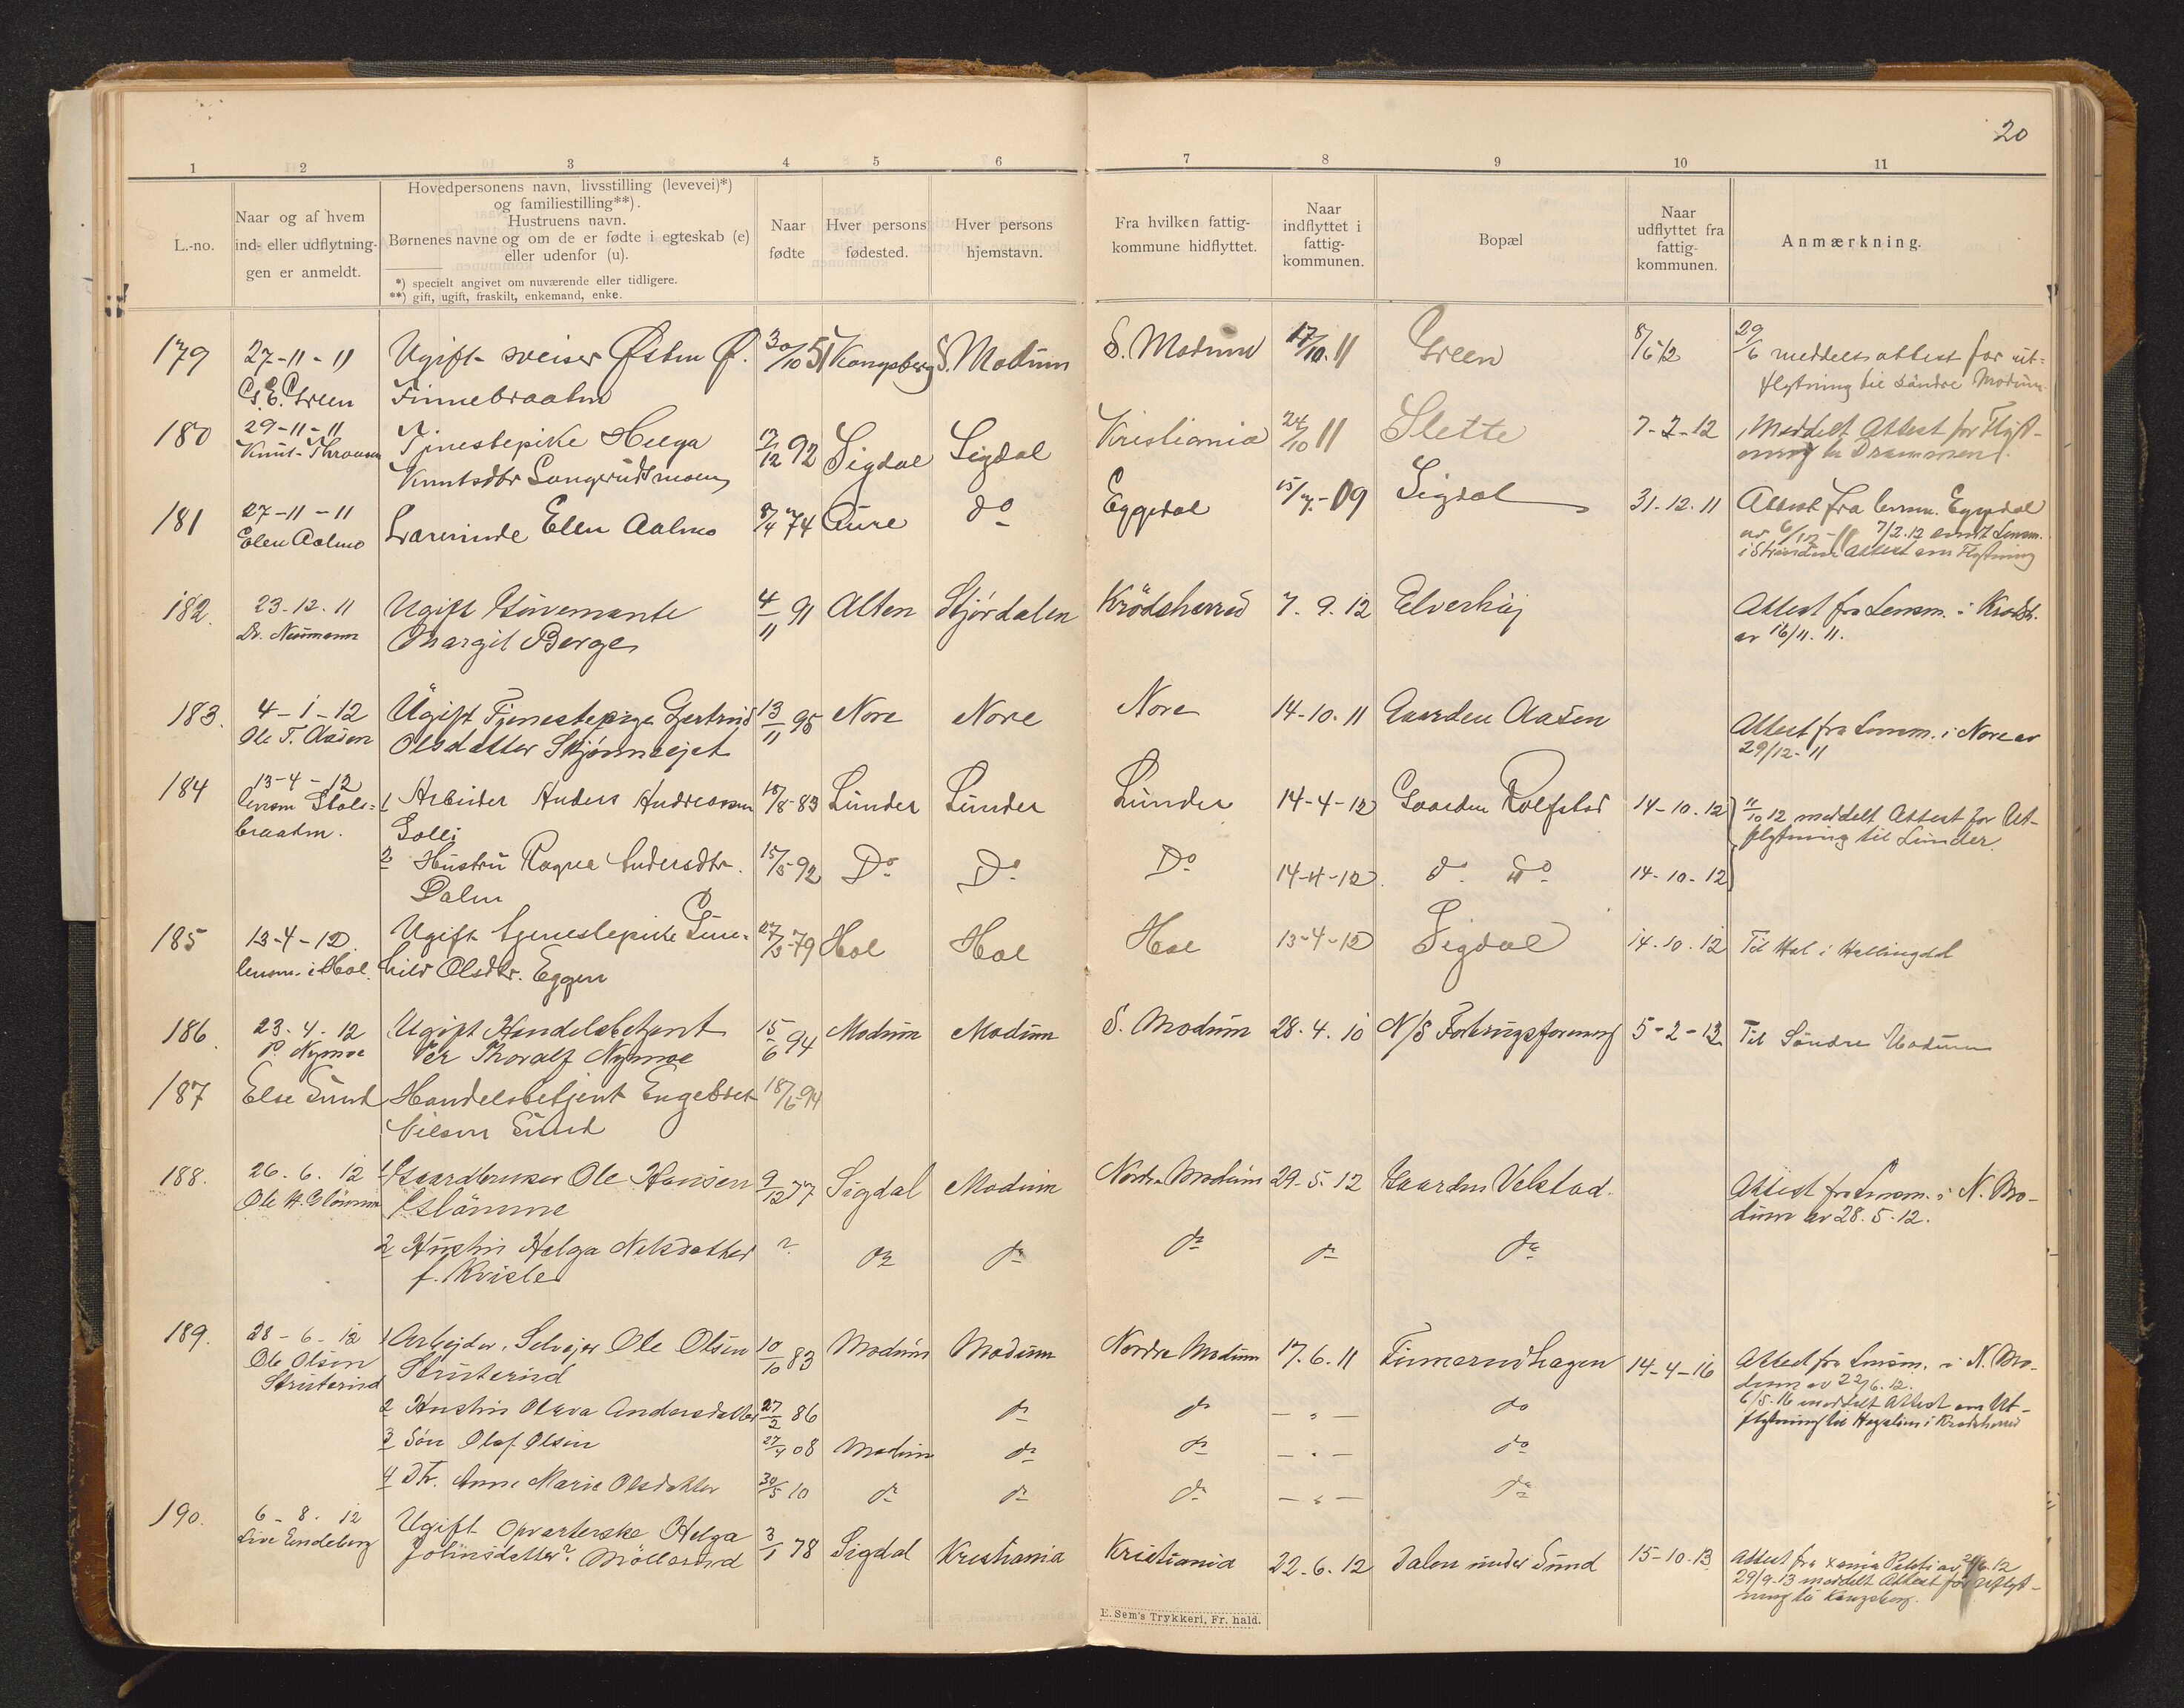 20
1 2 3 4 5 6 7 8 9 10 11
L.-no.
Naar og af hvem
ind- eller udflytnin-
gen er anmeldt.
Hovedpersonens navn, livsstilling (levevei)*)
og familiestilling**).
Hustruens navn.
Børnenes navne og om de er fødte i egteskab (e)
eller udenfor (u).
*) specielt angivet om nuværende eller tidligere.
**) gift, ugift, fraskilt, enkemand, enke.
Naar
fødte
Hver persons
fødested.
Hver persons
hjemstavn.
Fra hvilken fattig-
kommune hidflyttet.
Naar
indflyttet i
fattig-
kommunen.
Bopæl
Naar
udflyttet fra
fattig-
kommunen.
Anmærkning.
179
27-11-11
G. E. Green
Ugift sveiser Østen Ø.
Finnebraaten
30/10 51
Kongsberg
S. Modum
S. Modum
17/10. 11
Green
8/6 12
29/6 meddelt attest for ut-
flytning til Søndre Modum
180
29-11-11
Knut Thronsen
Tjenestepike Helga
Knutsdtr Langerudsmoen
12 92
Sigdal
Sigdal
Kristiania
24/10 11
Slette
7-2-12
Meddelt Attest for Flyt-
ning til Drammen
181
27-11-11
Ellen Aalmo
Lærerinde Ellen Aalmo
8/4 74
Aure
do
Eggedal
09
Sigdal
31.12.11
Attest fra lensm. Eggedal
7/2.12 sendt Lensm.
Attest om Flytning
182.
23-12. 11
Dr. Neumann
Ugift Stuvemante
Margit Berge
4/11 91
Alten
Stjørdalen
Krødsherred
7. 9. 12
Elverhøj
Attest fra Lensm. i Krødsh.
av 16/11. 11.
183.
4-1-12
Ole T. Aasen
Ugift Tjenestepige Gertrud
Olsdatter Skjønneejet
13/11 95
Nore
Nore
Nore
14-10. 11
Gaarden Aasen
Attest fra Lensm. i Nore av
29/12-11
184
13-4-12
lensm Stols-
braaten.
1 Arbeider Anders Andreassen
Golli
18/8-83
Lunder
Lunder
Lunder
14-4-12
Gaarden Rolfstad
14-10.12
11/10 12 meddelt Attest for Ut-
flytning til Lunder.
2 Hustru Ragna Andersdtr.
Dalen
15/5-92
Do
Do
Do
14-4-12.
do do
14-10-12
185
13-4-12.
lensm. i Hol.
Ugift tjenestepike Gun-
hild Olsdtr. Eggen
79
Hol
Hol
Hol
13-4-12
Sigdal
14.10.12
Til Hol i Hallingdal
186.
23. 4. 12
P. Nymoe
Ugift Handelsbetjent
Per Thoralf Nymoe
15/6 94
Modum
Modum
S. Modum
28. 4. 10
N/S Forbrugsforening
5-2-13
Til Søndre Modum
187
Else Sund
Handelsbetjent Engebret
Nilsen Sund
18/6 94
188.
26. 6. 12
Ole H. Glømme
1 Gaardbruker Ole Hansen
Glømme
9/12 77
Sigdal
Modum
Nordre Modum
29. 5. 12
Gaarden Velstad.
Attest fra Lensm. i N. Mo-
dum av 28. 5. 12.
2 Hustru Helga Nilsdatter
f. Kvisle
?
do
do
do
do
do
189.
28-6-12
Ole Olsen
Struterud
1 Arbejder, Selvejer Ole Olsen
Struterud
10/10 83
Modum
Modum
Nordre Modum
17. 6. 11
Finnerudhagen
14-4-16
Attest fra Lensm. i N. Mo-
dum av 22/6. 12.
6/5-16 meddelt Attest om Ut-
flytning til i Krødsherred
2 Hustru Oleva Andersdatter
27/2 86
do
do
— „ —
do
3 Søn Olaf Olsen
27/4 08
Modum
do
do
— „ —
do
4 Dtr. Anne Marie Olsdatter
30/5 10
do
do
do
— „ —
do
190.
6-8. 12
Live Endeberg
Ugift Opvarterske Helga
Johnsdatter? Møllerud
3/1 78
Sigdal
Kristiania
Kristiania
22. 6. 12
Dalen under Sund
15-10.13
Attest fra Xania Politi av 12
29/9-13 meddelt Attest for utflyt-
ning til Kongsberg.
E. Sem's Trykkeri, Fr. hald.